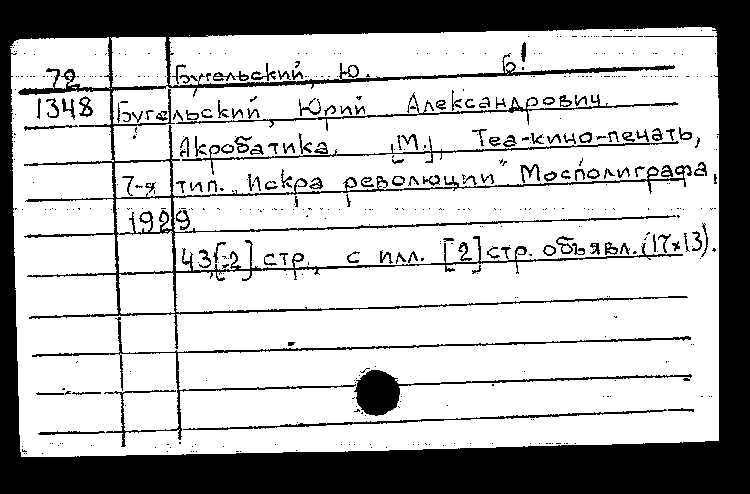 72 Бугельский, Ю. Б!
1348 Бугельский, Юрий Александрович.
Акробатика. [М.], Теа-кино-печать,
7-я тип. "Искра революции" Мосполиграфа,
1929.
43,[2] стр., с илл. [2] стр. объявл. (17х13).